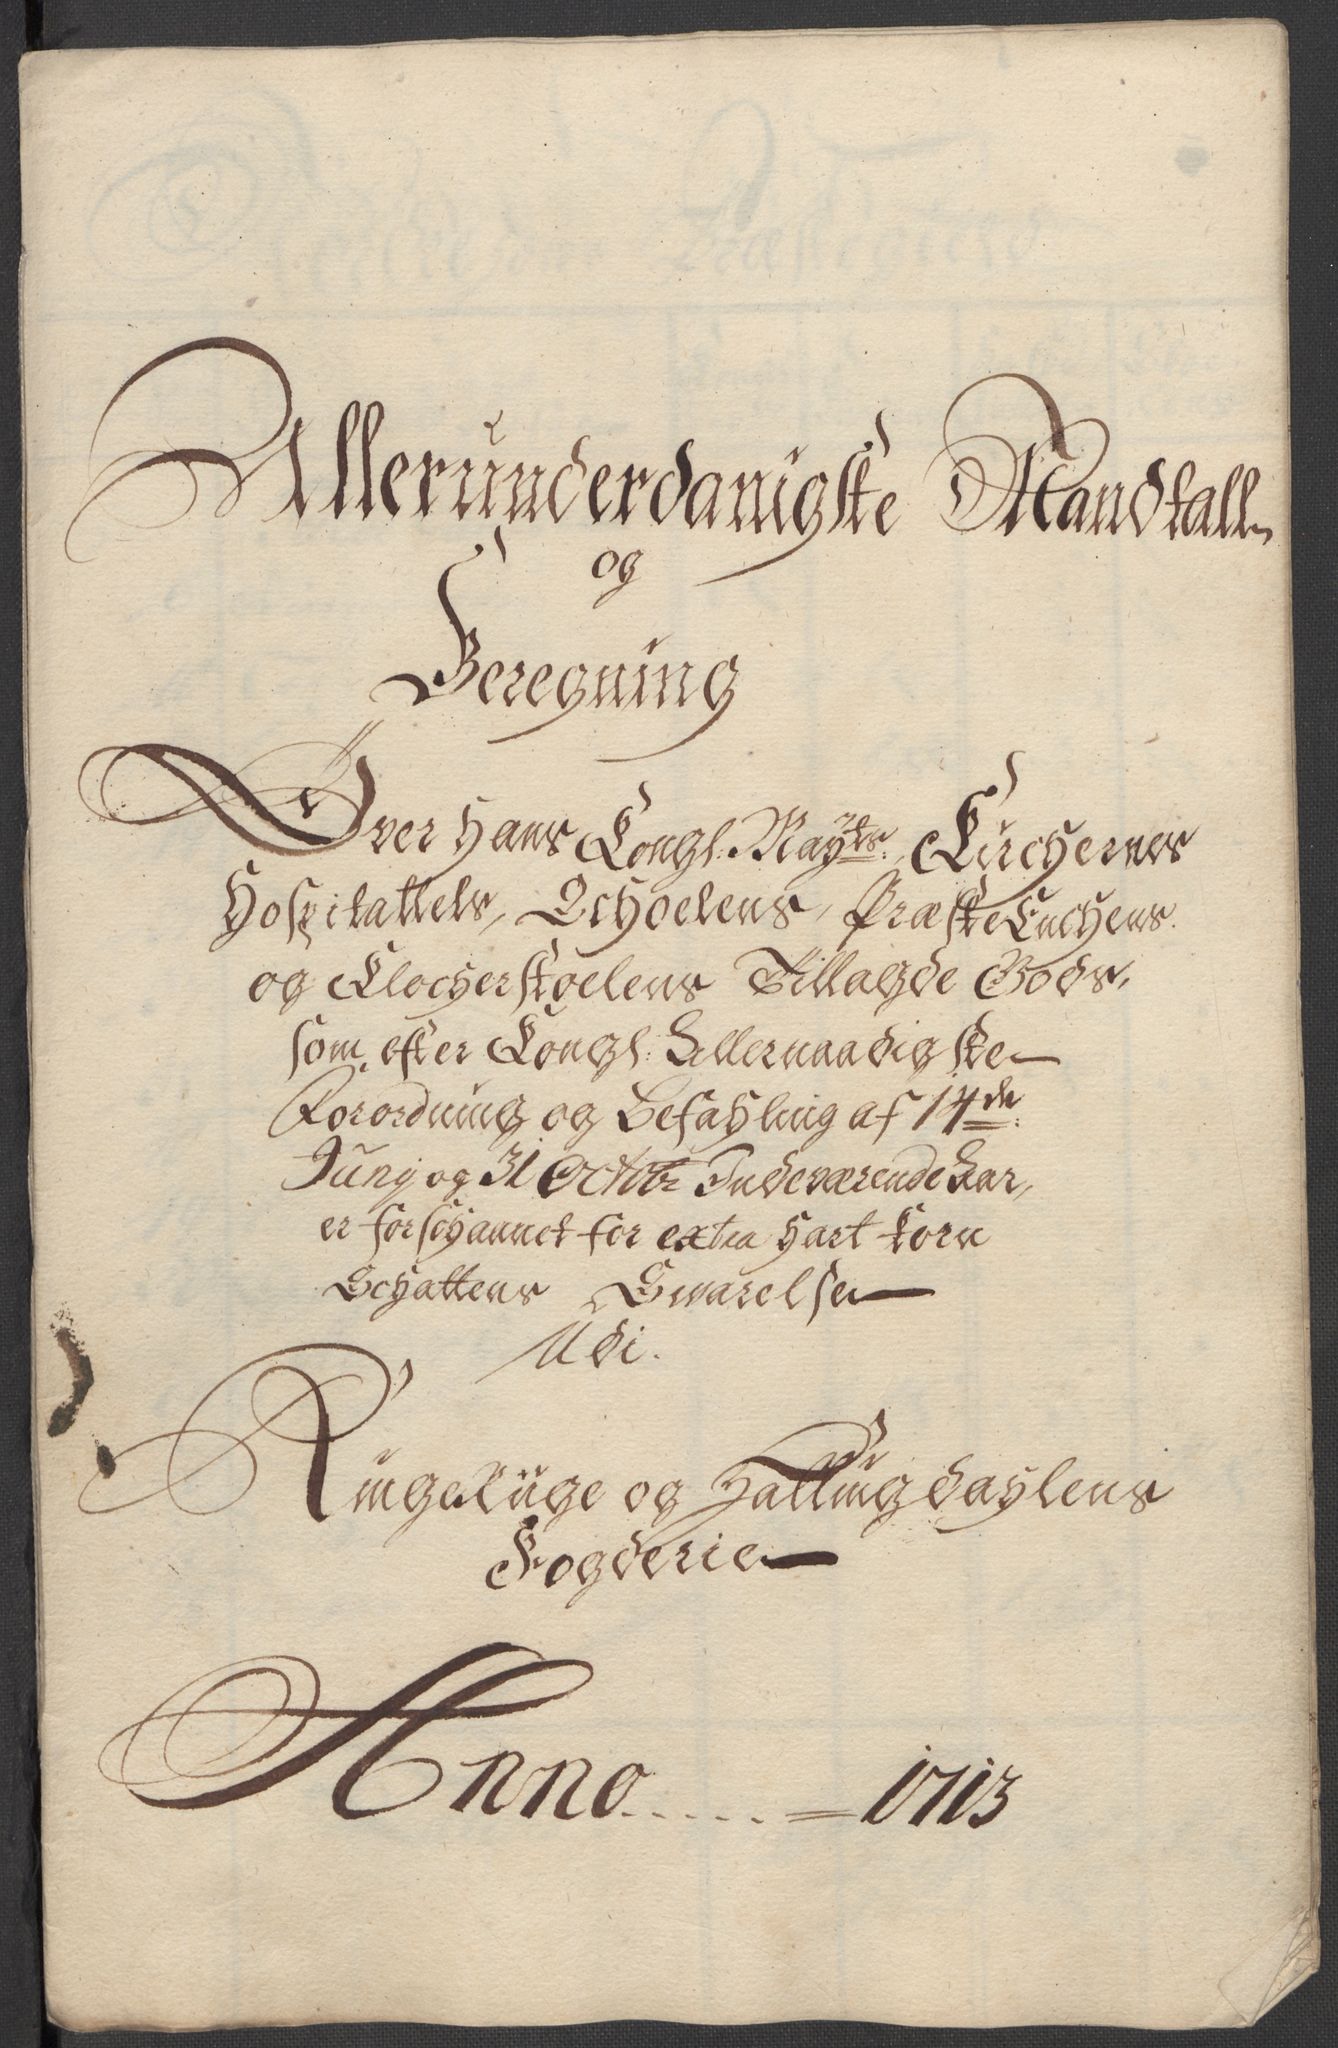 Allerunderdanigste Mandtall
og
Beregning
Over Hans Kongl: Mayts. Kirchernes
Hospitallets, Schoelens, Præste Enchens
og Klocherstoelens Tillagde Gods,
som efter Kongl: Allernaadigste
Forordning og Befahling af 14de
Junj og 31 Octobr Indeværende Aar,
er forschaanet for extra Hart Korn
Schattens Svarelse
Udi.
Ringerige og Hallingdahlens
Fogderie
Anno 1713